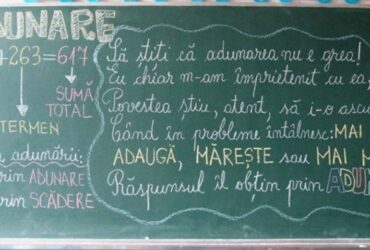 DUNARE
+263=617
SUMĂ
TOTAL
TERMEN
a adunării:
prin ADUNARE
prin SCĂDERE
Să știti că adunarea nu e grea!
Eu chiar m-am împrietenit cu ea,
Povestea știu, atent, să i-o ascu
Când în probleme întâlnesc: MAI
ADAUGĂ, MĂREȘTE sau MAI M
Răspunsul îl obțin prin ADUN